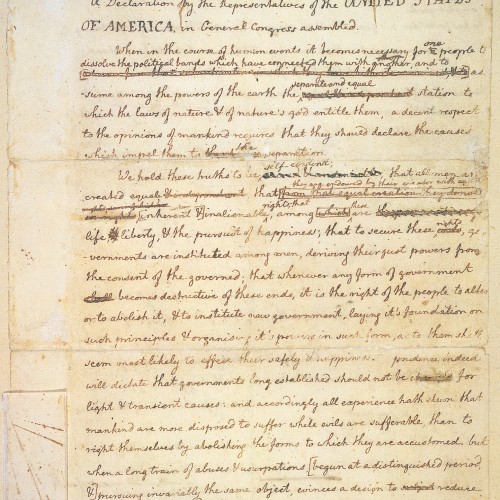 A Declaration by the Representatives of the UNITED STATES
OF AMERICA, in General Congress assembled.
When in the course of human events it becomes necessary for one people to
dissolve the political bands which have connected them with another, and to
as
separate and equal
sume among the powers of the earth the station to
which the laws of nature & of nature's god entitle them, a decent respect
to the opinions of mankind requires that they should declare the causes
which impel them to the separation.
self-evident;
We hold these truths to be that all men are
created equal that they are endowed by their creator with
rights; that these
inherent & inalienable among which are
rights
life, liberty, & the pursuit of happiness; that to secure these ends, go
-vernments are instituted among men, deriving their just powers from
the consent of the governed; that whenever any form of government
shall becomes destructive of these ends, it is the right of the people to alter
or to abolish it, & to institute new government, laying it's foundation on
such principles & organising it's powers in such form, as to them shall
seem most likely to effect their safety & happiness. prudence indeed
will dictate that governments long established should not be changed for
light & transient causes: and accordingly all experience hath shewn that
mankind are more disposed to suffer while evils are sufferable, than to
right themselves by abolishing the forms to which they are accustomed. but
when a long train of abuses & usurpations [begun at a distinguished period,
&] pursuing invariably the same object, evinces a design to reduce